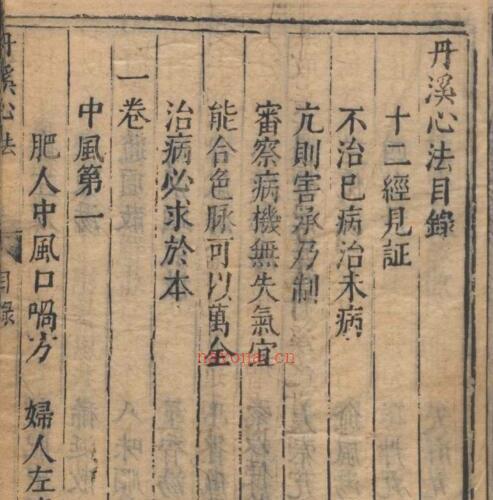 丹溪心法目錄
十二經見証
不治已病治未病
亢則害承乃制
審察病機無失氣宜
能合色脉可以萬全
治病必求於本
一卷
中風第一
肥人中風口喎方 婦人左
丹溪心法 目錄
nayona.cn